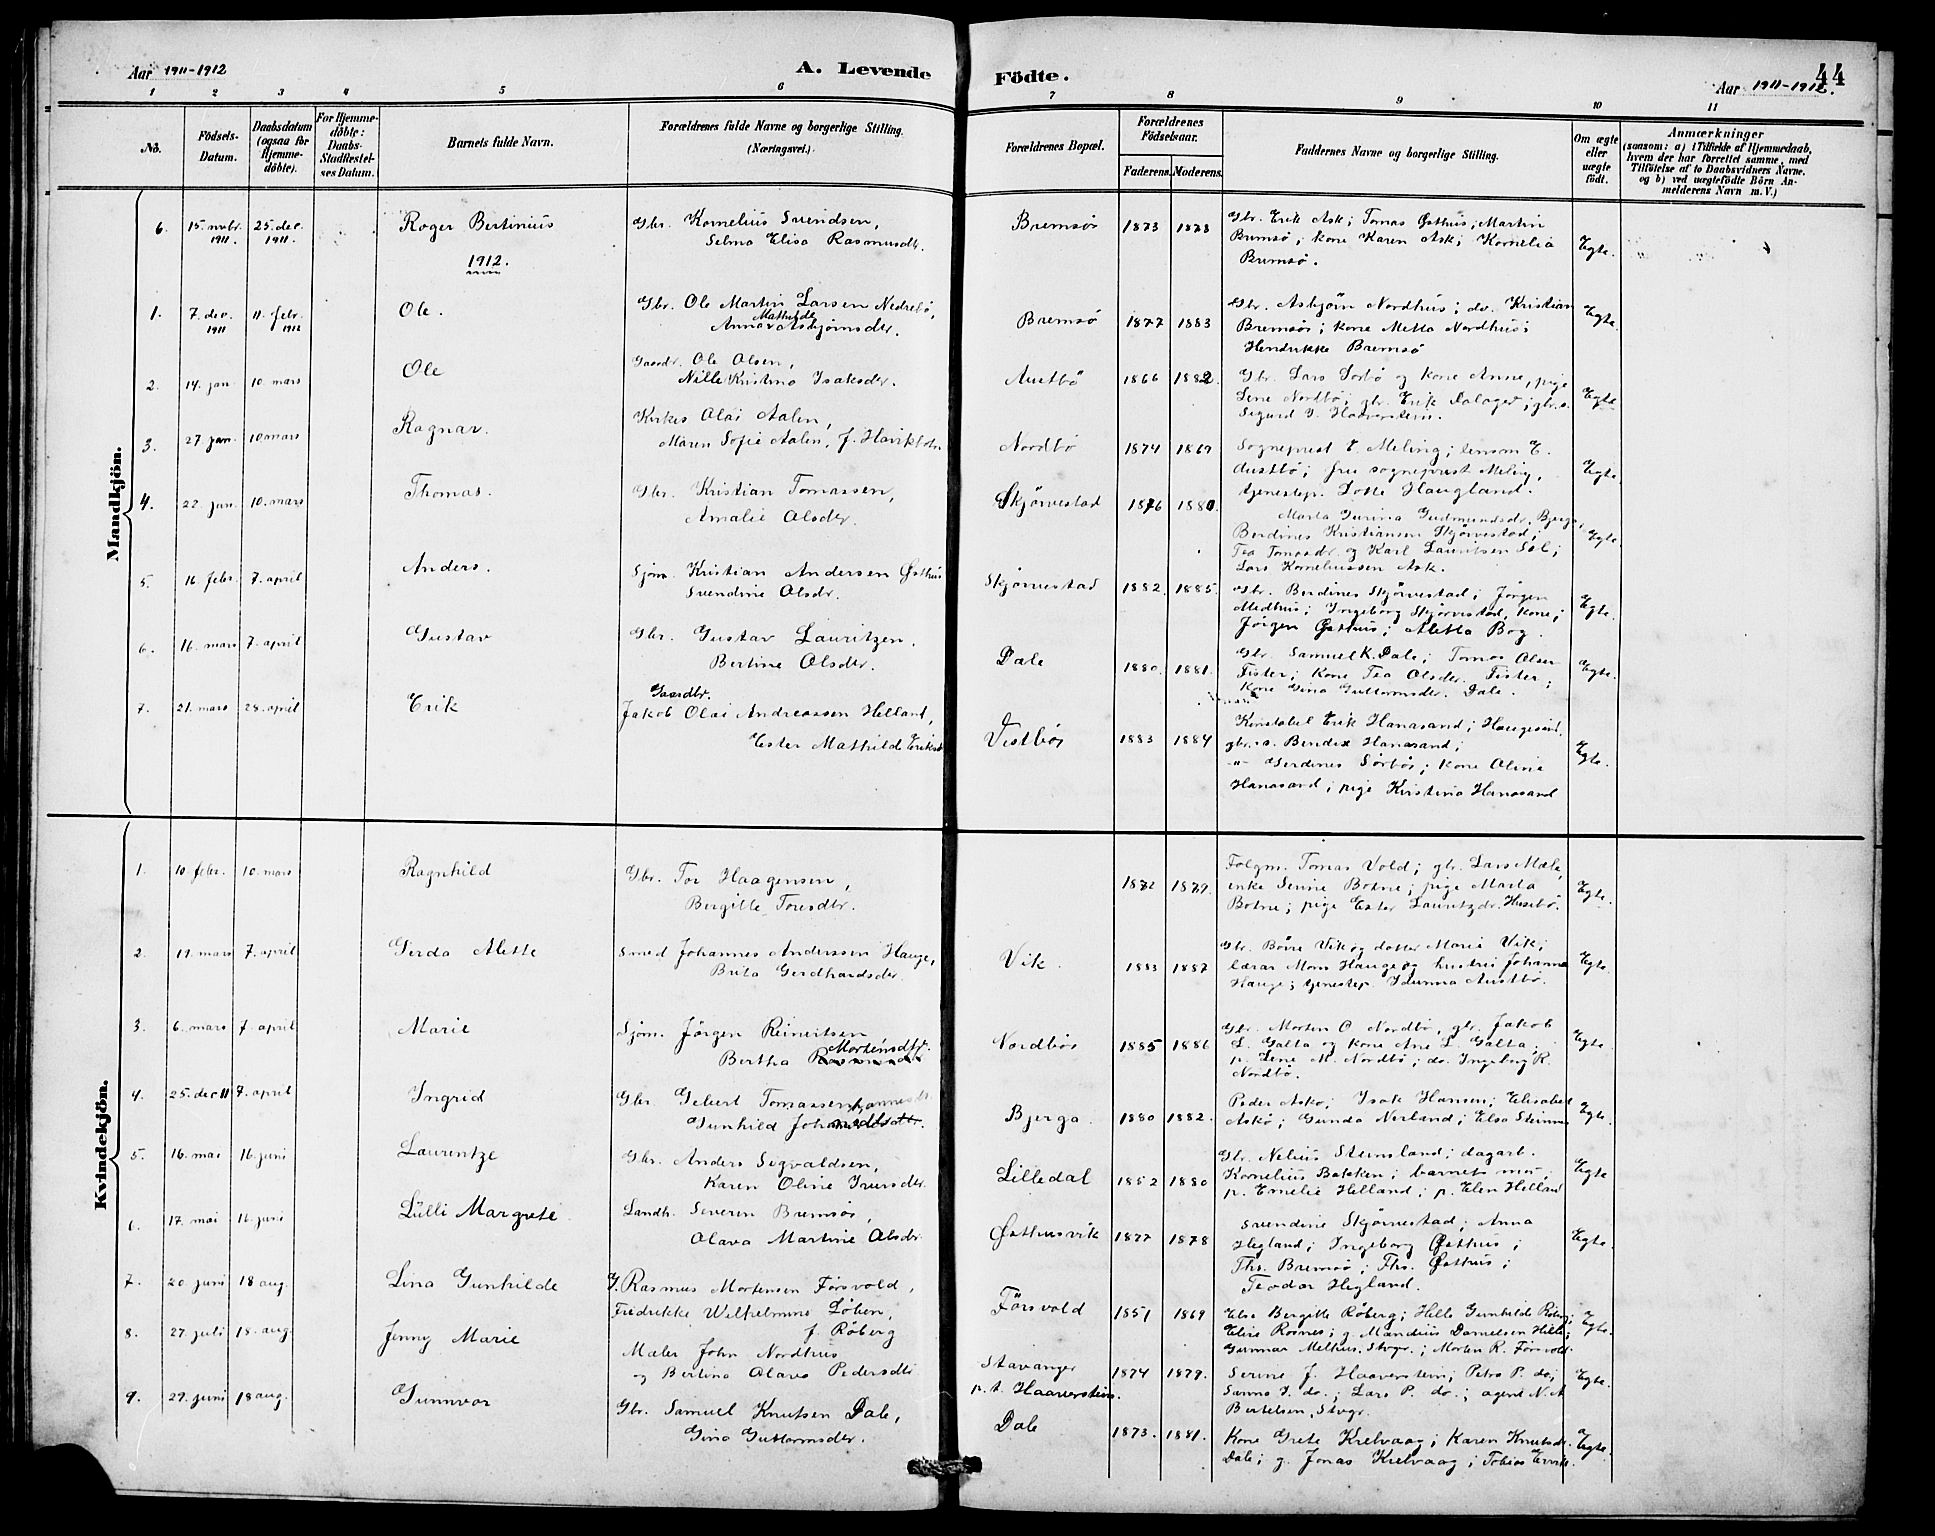 Aar 1911-1912
A. Levende Födte.
Aar 1911-1912.
44
1 2 3 4 5 6 7 8 9 10 11
No.
Födsels-Datum.
Daabsdatum (ogsaa for Hjemmedöbte).
For Hjemmedöbte: Daabs-Stadfæstelses Datum.
Barnets fulde Navn.
Forældrenes fulde Navne og borgerlige Stilling. (Næringsvei.)
Forældrenes Bopæl.
Forældrenes Födselsaar.
Faderens. Moderens.
Faddernes Navne og borgerlige Stilling.
Om ægte eller uægte födt.
Anmærkninger
(saasom: a) i Tilfælde af Hjemmedaab, hvem der har forrettet samme, med Tilföielse af to Daabsvidners Navne, og b) ved uægtefödte Börn Anmelderens Navn m. V.)
Mandkjön.
6. 15. novbr. 1911. 25. dec. 1911. Roger Bertinius
Gbr. Kornelius Svendsen,
Selma Elisa Rasmusdtr.
Bremsø 1873 1873
Gbr. Erik Ask; Tomas Østhus; Martin
Bremsø; kone Karen Ask; Kornelia
Bremsø.
Egte.
1912.
1. 7. dec. 1911 11. febr. 1912 Ole.
Gbr. Ole Martin Larsen Nedrebø,
Anna Mathilde Asbjørnsdr.
Bremsø 1877 1883
Gbr. Asbjørn Nordhus; do. Kristian
Bremsøs; kone Metta Nordhus;
Hendrikke Bremsø
Egte.
2. 14. jan. 10. mars Ole
Gaardbr. Ole Olsen,
Nille Kristina Isaksdr.
Austbø 1866 1882.
Gbr. Lars Sørbø og kone Anne, pige
Lene Nordbø; gbr. Erik Dalager; gbr.s.
Sigurd J. Haaverstein.
Egte
3. 27. jan. 10 mars Ragnar.
Kirkes. Olai Aalen,
Maren Sofie Aalen, f.
Nordbø 1874 1869
Sogneprest E. Meling; lensm. E.
Austbø; frue sogneprest Meling,
tjenestep. Lotte Haugland.
Egte.
4. 22. jan. 10. mars Thomas.
Gbr. Kristian Tomassen,
Amalie Olsdr.
Skjørvestad 1876 1880.
Marta Gurina Gudmundsdr. Bjerga,
Berdines Kristiansen Skjørvestad;
Tea Tomasdr. og Karl Lauritsen Sel;
Lars Korneliussen Ask.
Egte.
5. 16 febr. 7. april Anders.
Sjøm. Kristian Andersen Østhus
Svendine Olsdr.
Skjørvestad 1882. 1885.
Gbr. Berdines Skjørvestad; Jørgen
Medhus; Ingeborg Skjørvestad, kone;
Jørgen Østhus; Aletta Bog.
Egte.
6. 16. mars 7. april Gustav
Gbr. Gustav Lauritzen.
Bertine Olsdr.
Dale 1880. 1881.
Gbr. Samuel K. Dale; Tomas Olsen
Fister; Kone Tea Olsdr. Fister;
Kone Gina Guttormsdr. Dale.
Egte.
7. 21. mars 28. april Erik
Gaardbr.
Jakob Olai Andreassen Helland,
Ester Mathilde Eriksd.
Vestbø 1883 1884
Konstabel Erik Hanasand; Haugesund,
gbr.s. Bendix Hanasand;
-"- Gerdines Sørbøs; kone Oline
Hanasand; pige Kristina Hanasand
Egte.
Kvindekjön.
1. 10. febr. 10. mars Ragnhild
Gbr. Tor Haagensen,
Birgitte Toresdtr.
1872 1879.
Folgm. Tomas Vold; gbr. Lars Mæle,
enke Serine Botne; pige Marta
Botne; pige Ester Lauritzdr. Husebø.
Egte.
2. 19. mars 7. april Gerda Alette
Smed Johannes Anderssen Hauge,
Brita Gerdhardsdr.
Vik. 1883 1887
Gbr. Børe Vik og datter Marie Vik;
lærar Mom Hauge og hustru Johanna
Hauge; tjenestep. Idunna Austbø.
Egte.
3. 6. mars 7. april Marie
Sjøm. Jørgen Reinertsen
Bertha Mortensdtr.
Nordbø 1885 1886
Gbr. Morten O. Nordbø, gbr. Jakob
L. Galta og kone Ane L. Galta;
p. Lene M. Nordbø; do. Ingeborg R.
Nordbø.
Egte.
4. 25. dec 11 7. april Ingrid
Gbr. Gebert Tomassen
Gunhild
Bjerga 1880 1882.
Peder Askø; Isak Hansen; Elisabet
Askø; Gunda Nerland; Elsa Steinnes
Egte.
5. 16. mai 16. juni Laurentze
Gbr. Anders Sigvaldsen,
Karen Oline Iversdr.
Lilledal 1852 1880
Gbr. Nelius Steinsland; dagarb.
Kornelius Bakken; barnets mor,
p. Emelie Helland; p. Elen Helland
Egte
6. 17. mai 16. juni Lülli Margrete
Landh. Severin Bremsø,
Olava Martine Olsdr.
Østhusvik 1877 1878
Svendine Skjørvestad; Anna
Hegland; Ingeborg Østhus;
Ths. Bremsø; Ths. Østhus;
Teodor Hegland.
Egte.
7. 20. juni 18 aug. Lina Gunhilde
G. Rasmus Mortensen Førsvold,
Fredrikke Wilhelmine Løken,
f. Røberg
Førsvold 1851 1869
Else Bergitte Røberg; Helle Gunhilde Røberg;
Elise Rosnes; g. Mandius Danielsen Hille;
Gunnar Melhus, Stvgr.; Morten R. Førsvold.
Egte.
8. 27. juli 18. aug. Jenny Marie
Maler John Nordhus
og Bertina Olava Pedersdtr
Stavanger
p.t. Haaverstein.
1874 1879.
Serine J. Haaverstein; Petra P. do;
Sanna J. do.; Lars P. do.; agent N. A
Bertelsen, Stvgr.
Egte.
9. 29. juni 18 aug. Gunnvor
Gbr. Samuel Knutsen Dale,
Gina Guttormsdtr.
Dale 1873. 1881.
Kone Grete Krelvaag; Karen Knutsdr.
Dale; g. Jonas Krelvaag; Tobias Ervik.
Egte.